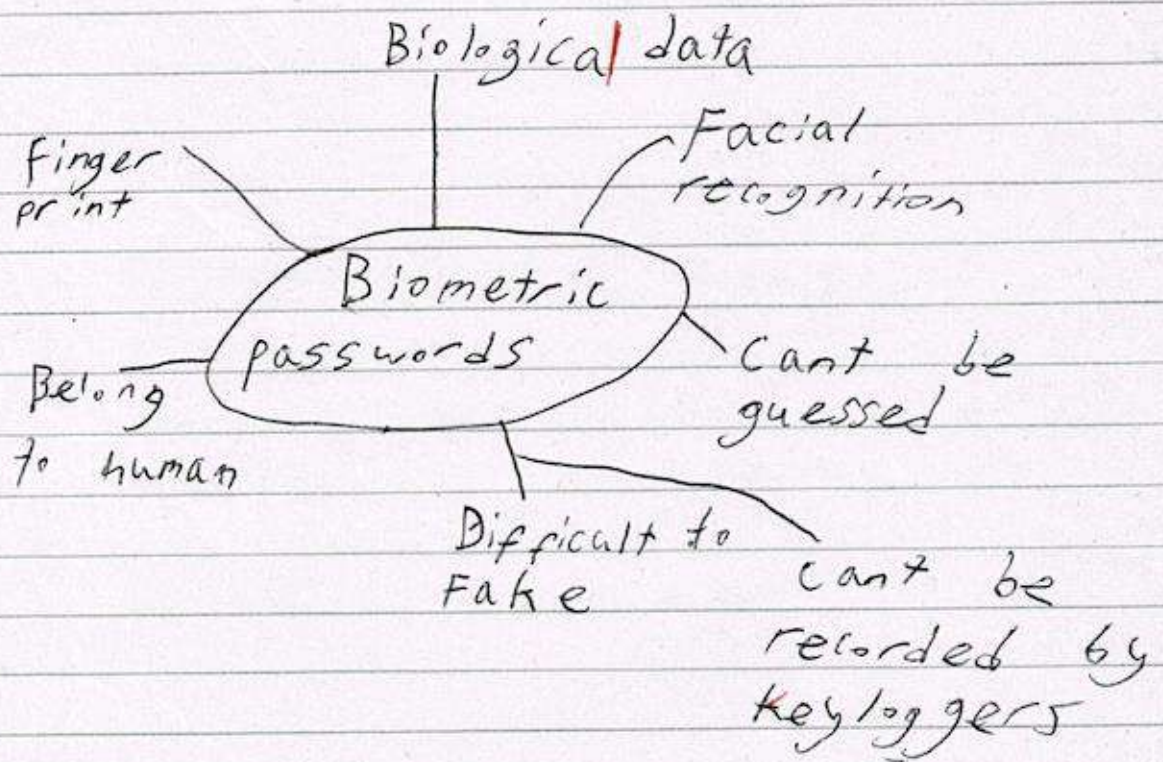 Biological data
Facial
recognition
finger
print
Biometric
passwords
Cant be
guessed
Belong
to human
Difficult to
Fake
Cant be
recorded by
keyloggers